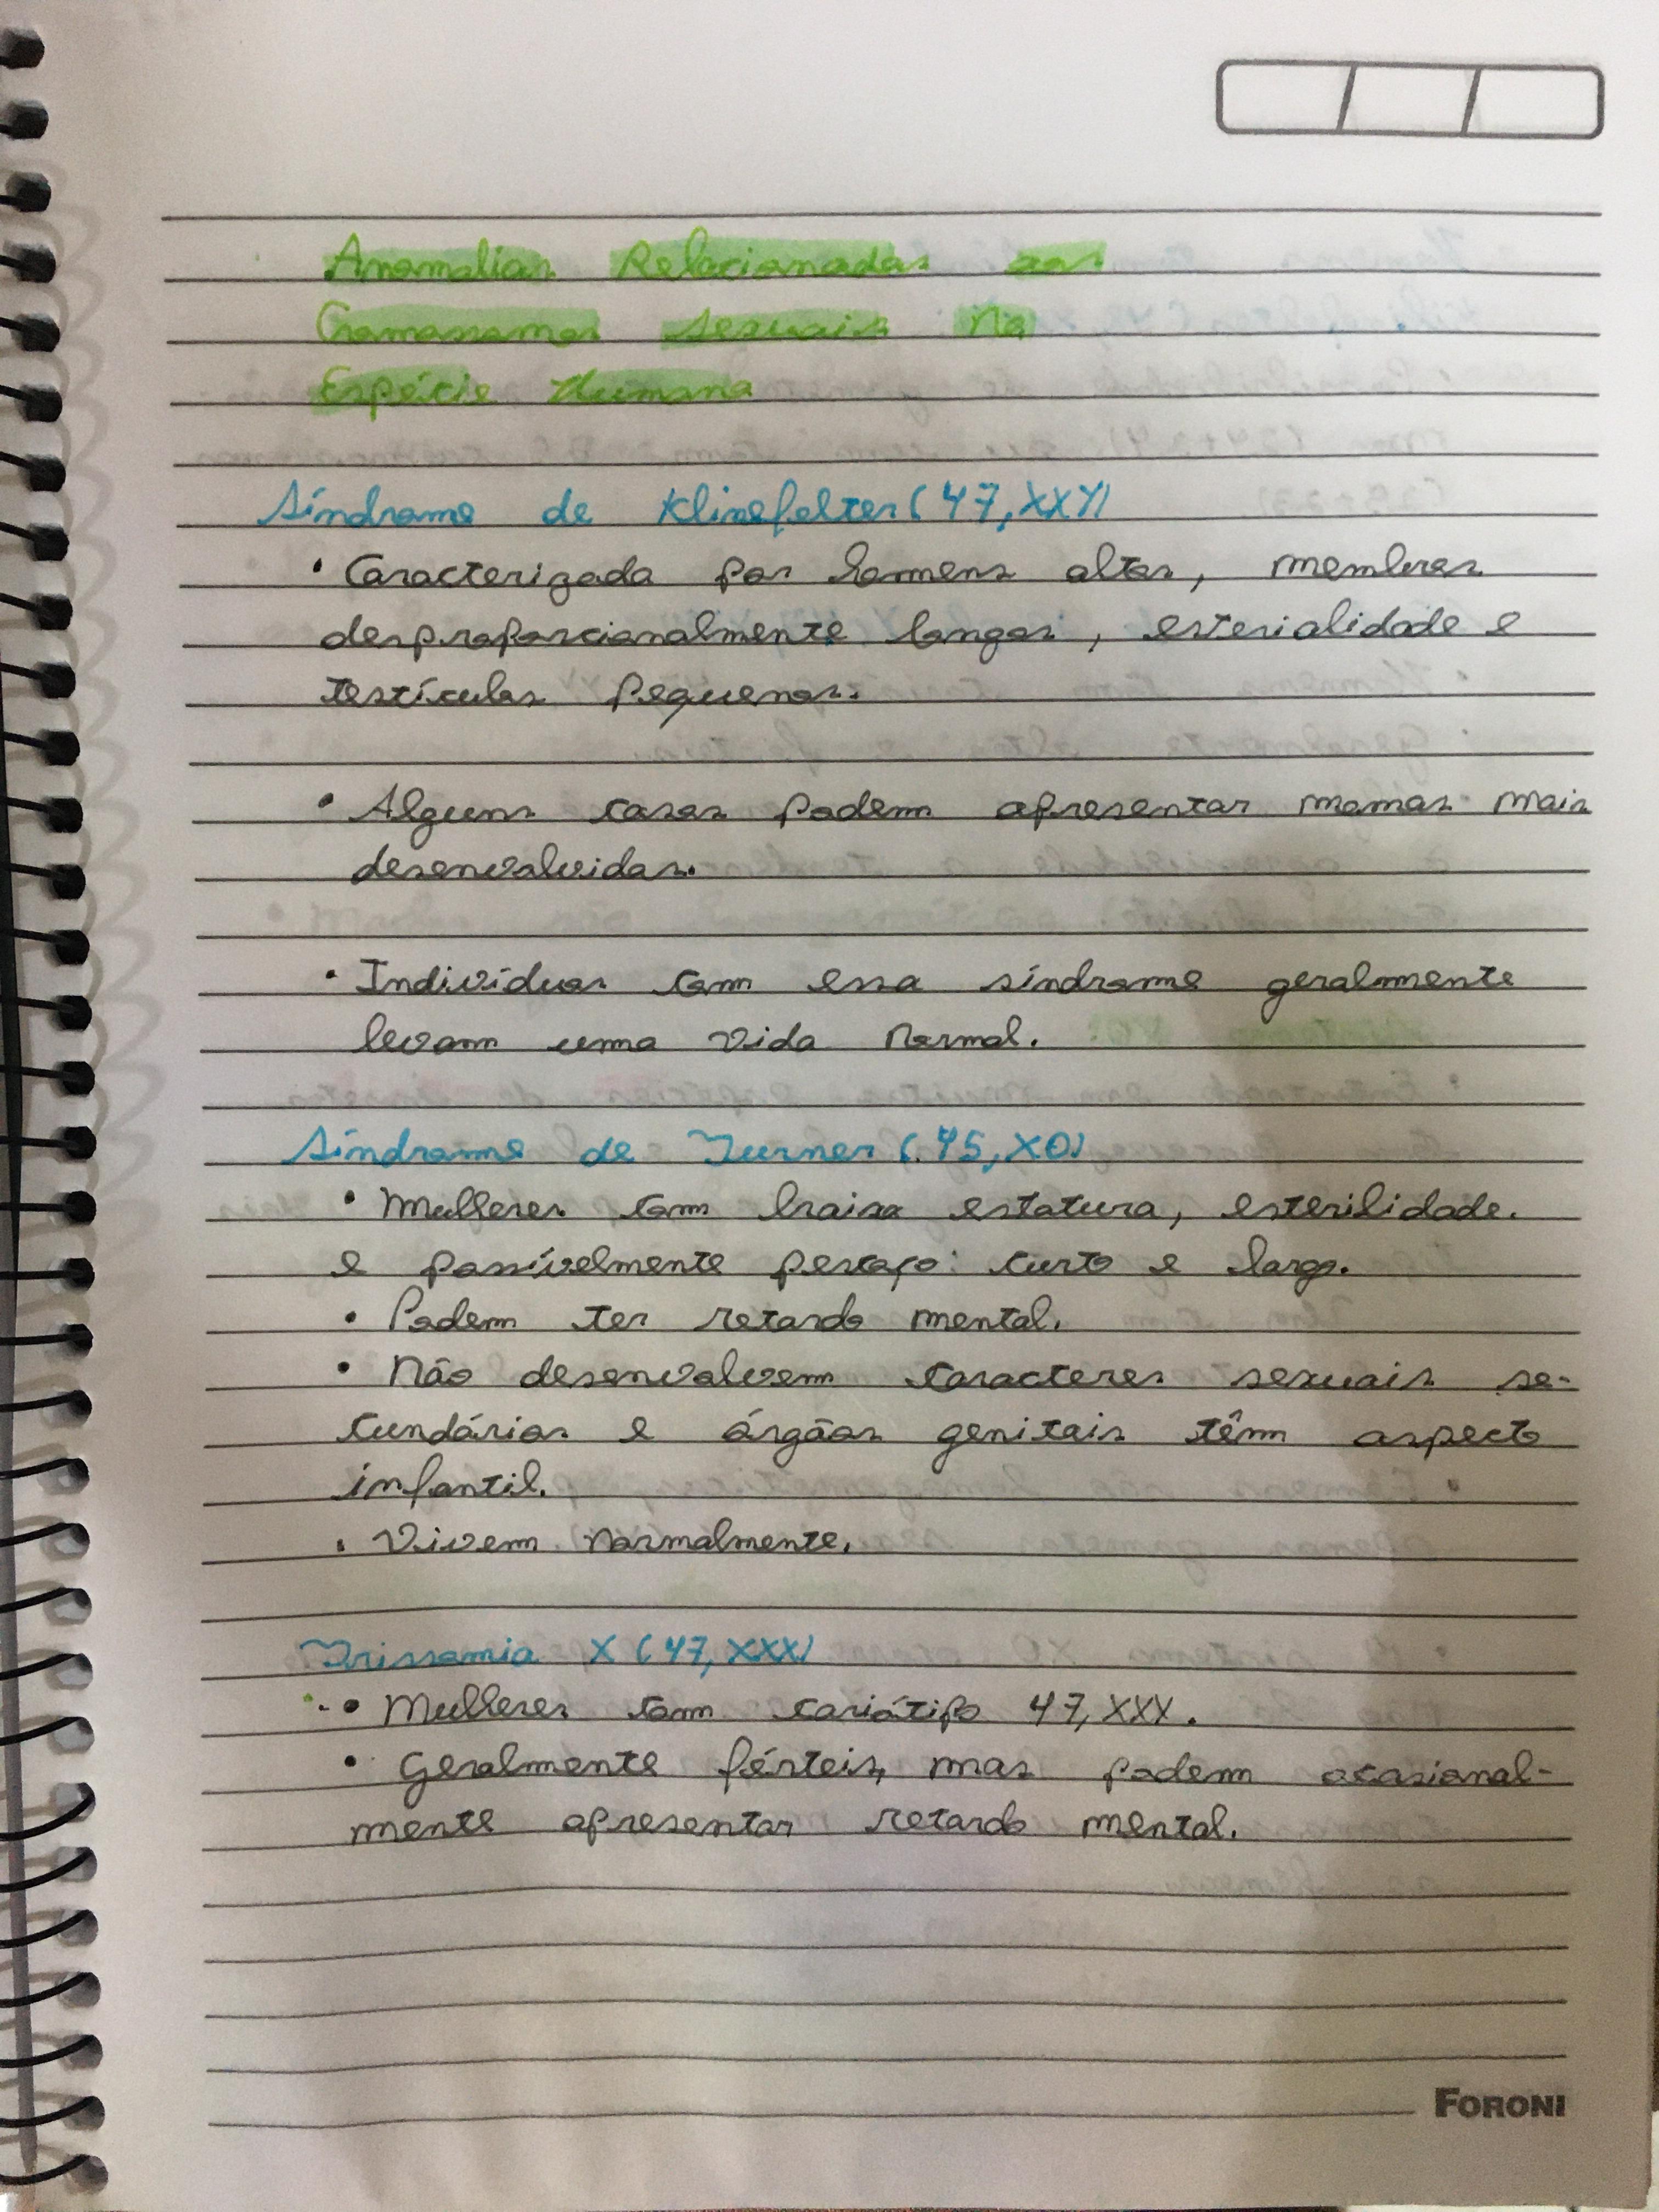 Anomalias Relacionadas aos
Cromossomos sexuais na
Espécie Humana
Síndrome de Klinefelter (47, XXY)
• Caracterizada por homens altos, membros
desproporcionalmente longos, esterialidade e
testículos pequenos.
• Alguns casos podem apresentar mamas mais
desenvolvidas.
• Indivíduos com essa síndrome geralmente
levam uma vida normal.
Síndrome de Turner (45, XO)
• Mulheres com baixa estatura, esterilidade.
e possívelmente pescoço curto e largo.
• Podem ter retardo mental.
• Não desenvolvem caracteres sexuais se-
cundários e órgãos genitais têm aspecto
infantil.
• Vivem normalmente.
Trissomia X (47, XXX)
• Mulheres com cariótipo 47, XXX.
• Geralmente férteis, mas podem ocasional-
mente apresentar retardo mental.
FORONI